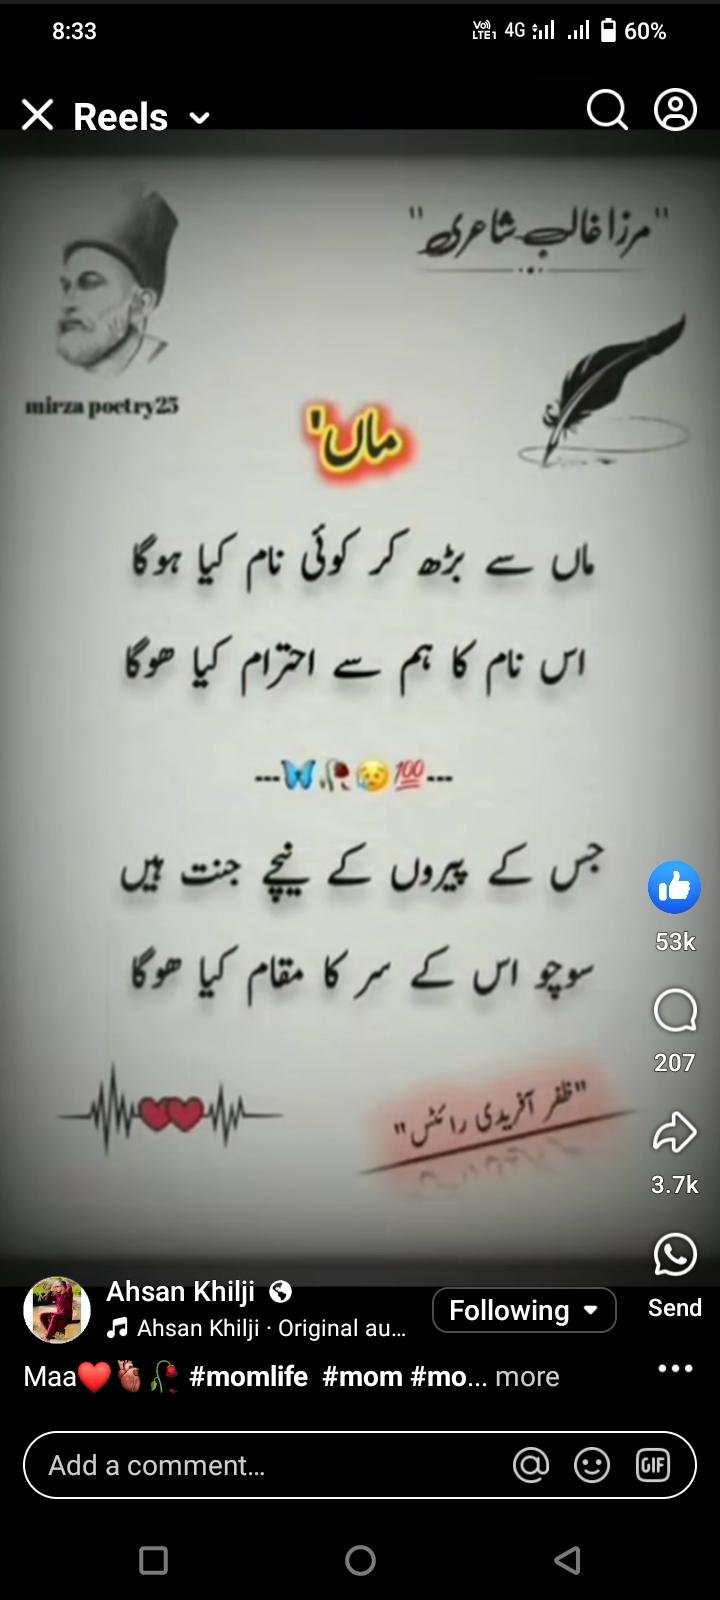 8:33
Vo) LTE1 4G 60%
Reels
"مرزا غالب شاعری"
mirza poetry25
ماں'
ماں سے بڑھ کر کوئی نام کیا ہوگا
اس نام کا ہم سے احترام کیا ھوگا
---🦋🥀😥💯---
جس کے پیروں کے نیچے جنت ہیں
سوچو اس کے سر کا مقام کیا ھوگا
"ظفر آفریدی رائٹس"
53k
207
3.7k
Send
Ahsan Khilji
Ahsan Khilji · Original au...
Following
Maa❤️🫀🥀 #momlife #mom #mo... more
Add a comment...
GIF